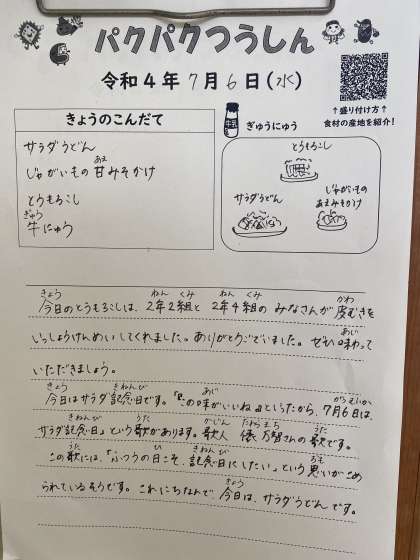 パクパクつうしん
令和4年7月6日(水)
↑盛り付け方↑
食材の産地を紹介!
きょうのこんだて
サラダうどん
じゃがいもの甘みそかけ
あま
とうもろこし
ぎゅう
牛にゅう
牛乳
ぎゅうにゅう
とうもろこし
サラダうどん
じゃがいもの
あまみそかけ
きょう ねん くみ ねん くみ かわ
今日のとうもろこしは、2年2組と2年4組のみなさんが皮むきを
あじ
いっしょうけんめいしてくれました。ありがとうございました。ぜひ味わって
いただきましょう。
きょう きねんび あじ がつ むいか
今日はサラダ記念日です。「『この味がいいね』といったから、7月6日は、
きねんび うた かじん たわらまち うた
サラダ記念日」という歌があります。歌人 俵 万智さんの歌です。
うた ひ きねんび おも
この歌には、「ふつうの日こそ、記念日にしたい」という思いがこめ
きょう
られているそうです。これにちなんで、今日は、サラダうどんです。